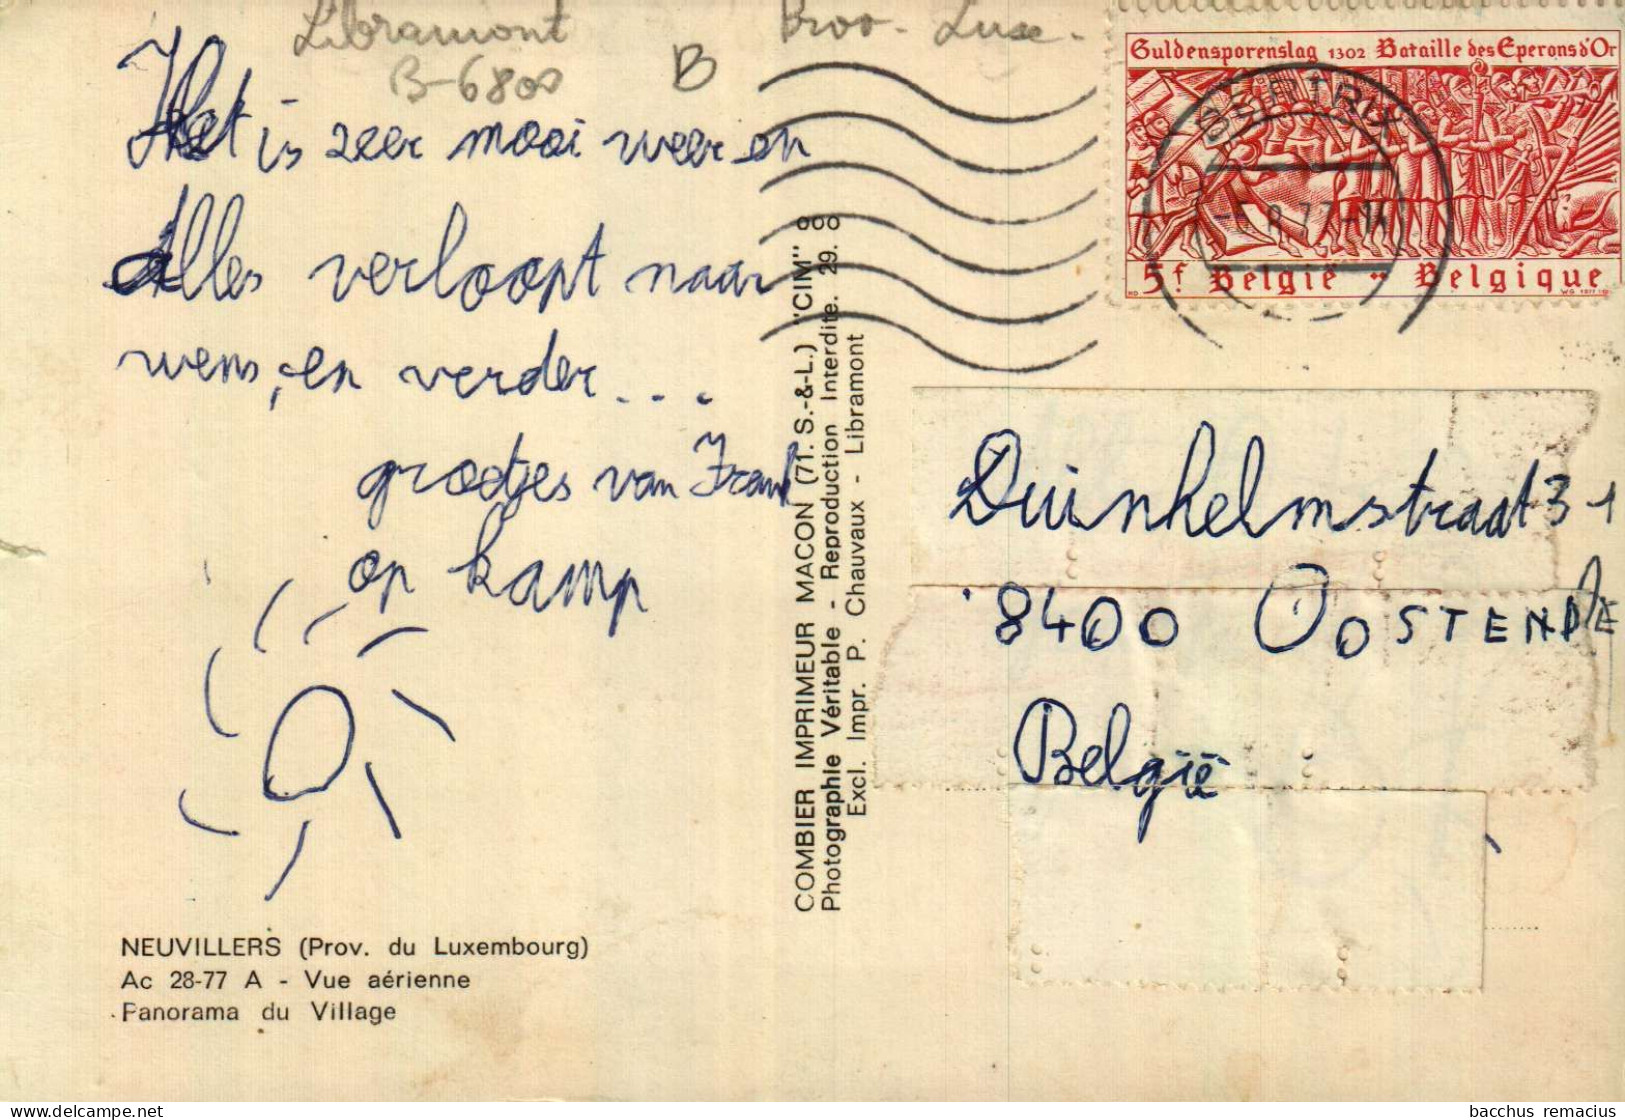 Libramont
B-6800
B
Prov. Luxe.
Het is zeer mooi weer en
Alles verloopt naar
wens, en verder...
groetjes van Frank
op kamp
NEUVILLERS (Prov. du Luxembourg)
Ac 28-77 A - Vue aérienne
Panorama du Village
COMBIER IMPRIMEUR MACON (71. S.-&-L.) "CIM"
Photographie Véritable - Reproduction Interdite. 29.
Excl. Impr. P. Chauvaux - Libramont
Guldensporenslag 1302 Bataille des Eperons d'Or
BERTRIX
77-14
5f België Belgique
Duinhelmstraat 31
8400 OOSTENDE
België
bacchus remacius